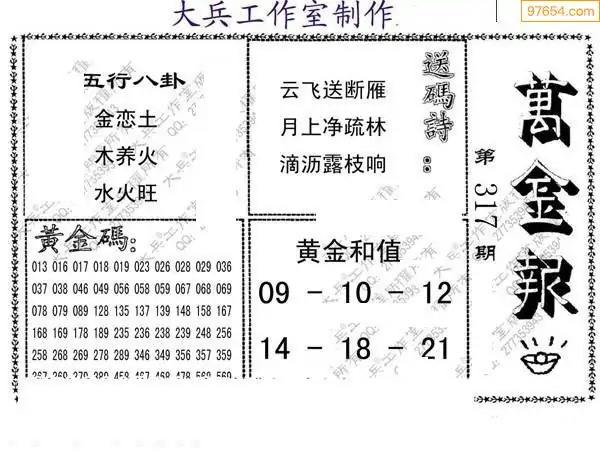 大兵工作室制作
97654.com
五行八卦
金恋土
木养火
水火旺
送碼詩:
云飞送断雁
月上净疏林
滴沥露枝响
萬金報
第317期
黄金碼:
013 016 017 018 019 023 026 028 029 036
037 038 046 049 056 058 059 067 068 069
078 079 089 128 135 137 139 148 158 167
168 169 178 189 235 236 238 239 248 256
258 268 269 278 289 345 346 356 357 359
黄金和值
09 - 10 - 12
14 - 18 - 21